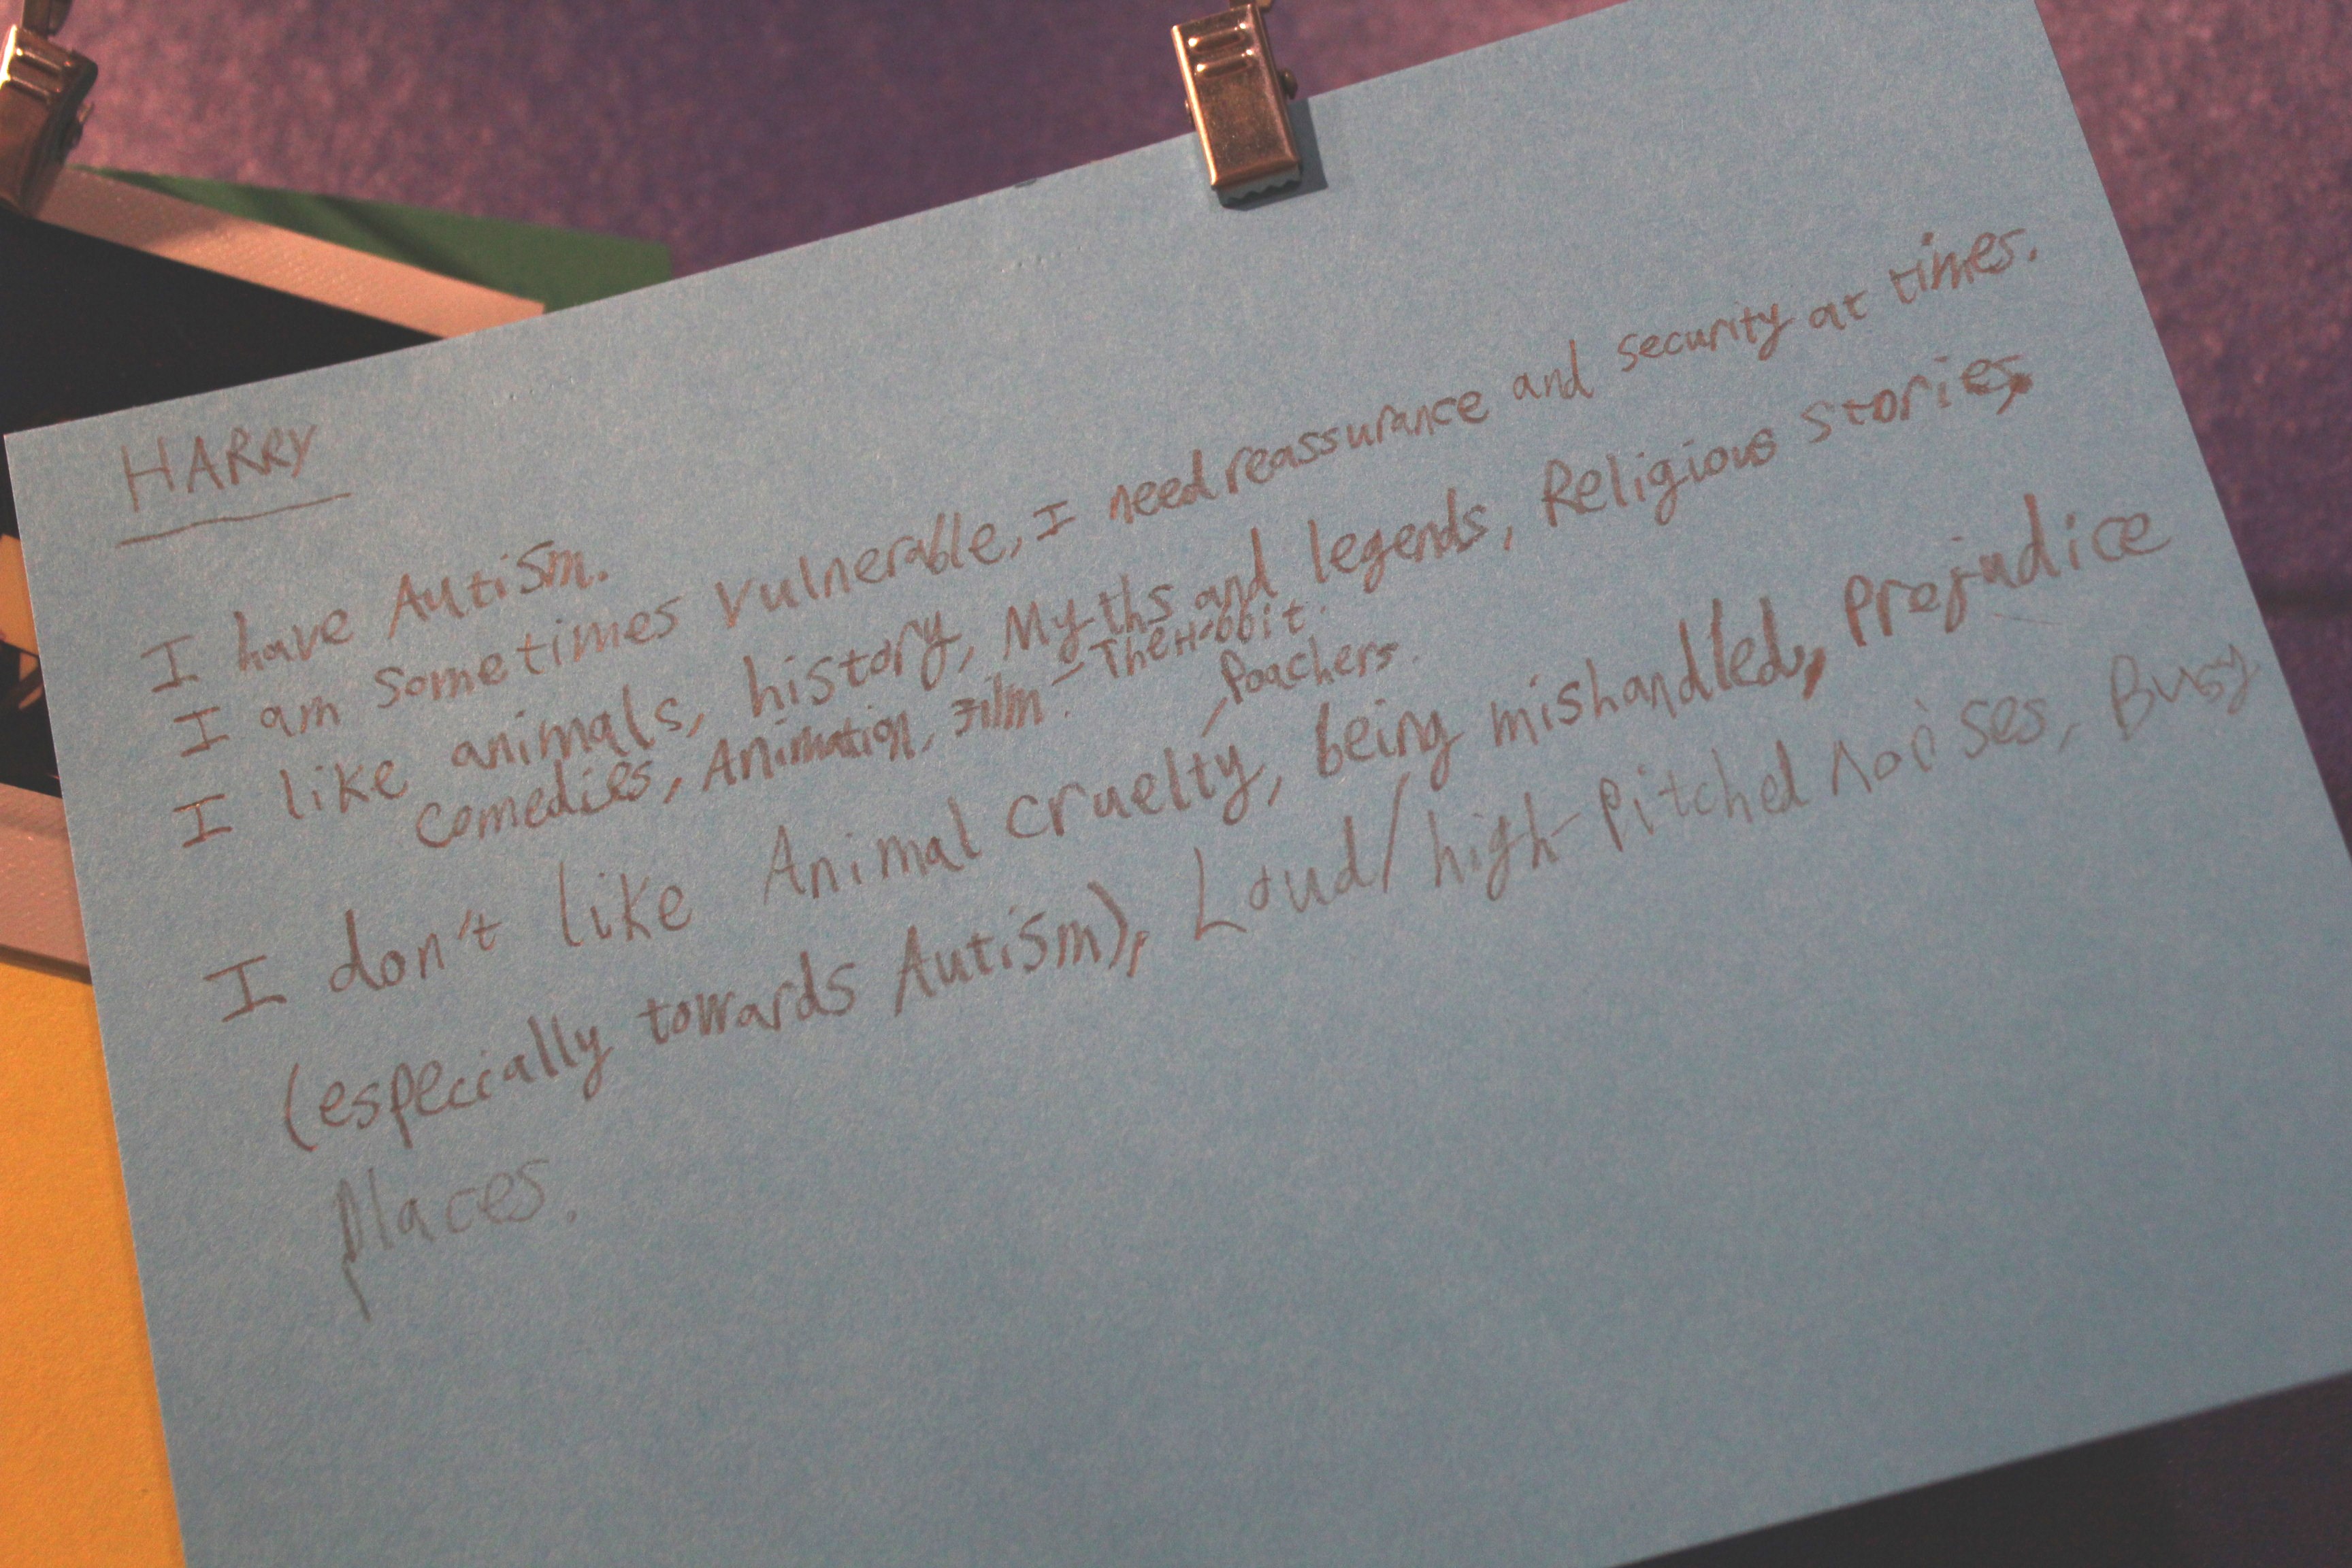 HARRY
I have Autism.
I am sometimes vulnerable, I need reassurance and security at times.
I like animals, history, Myths and legends, Religious stories,
comedies, Animation, Film - The Hobbit.
, Poachers.
I don't like Animal cruelty, being mishandled, prejudice
(especially towards Autism), Loud/high-pitched noises, Busy
places.